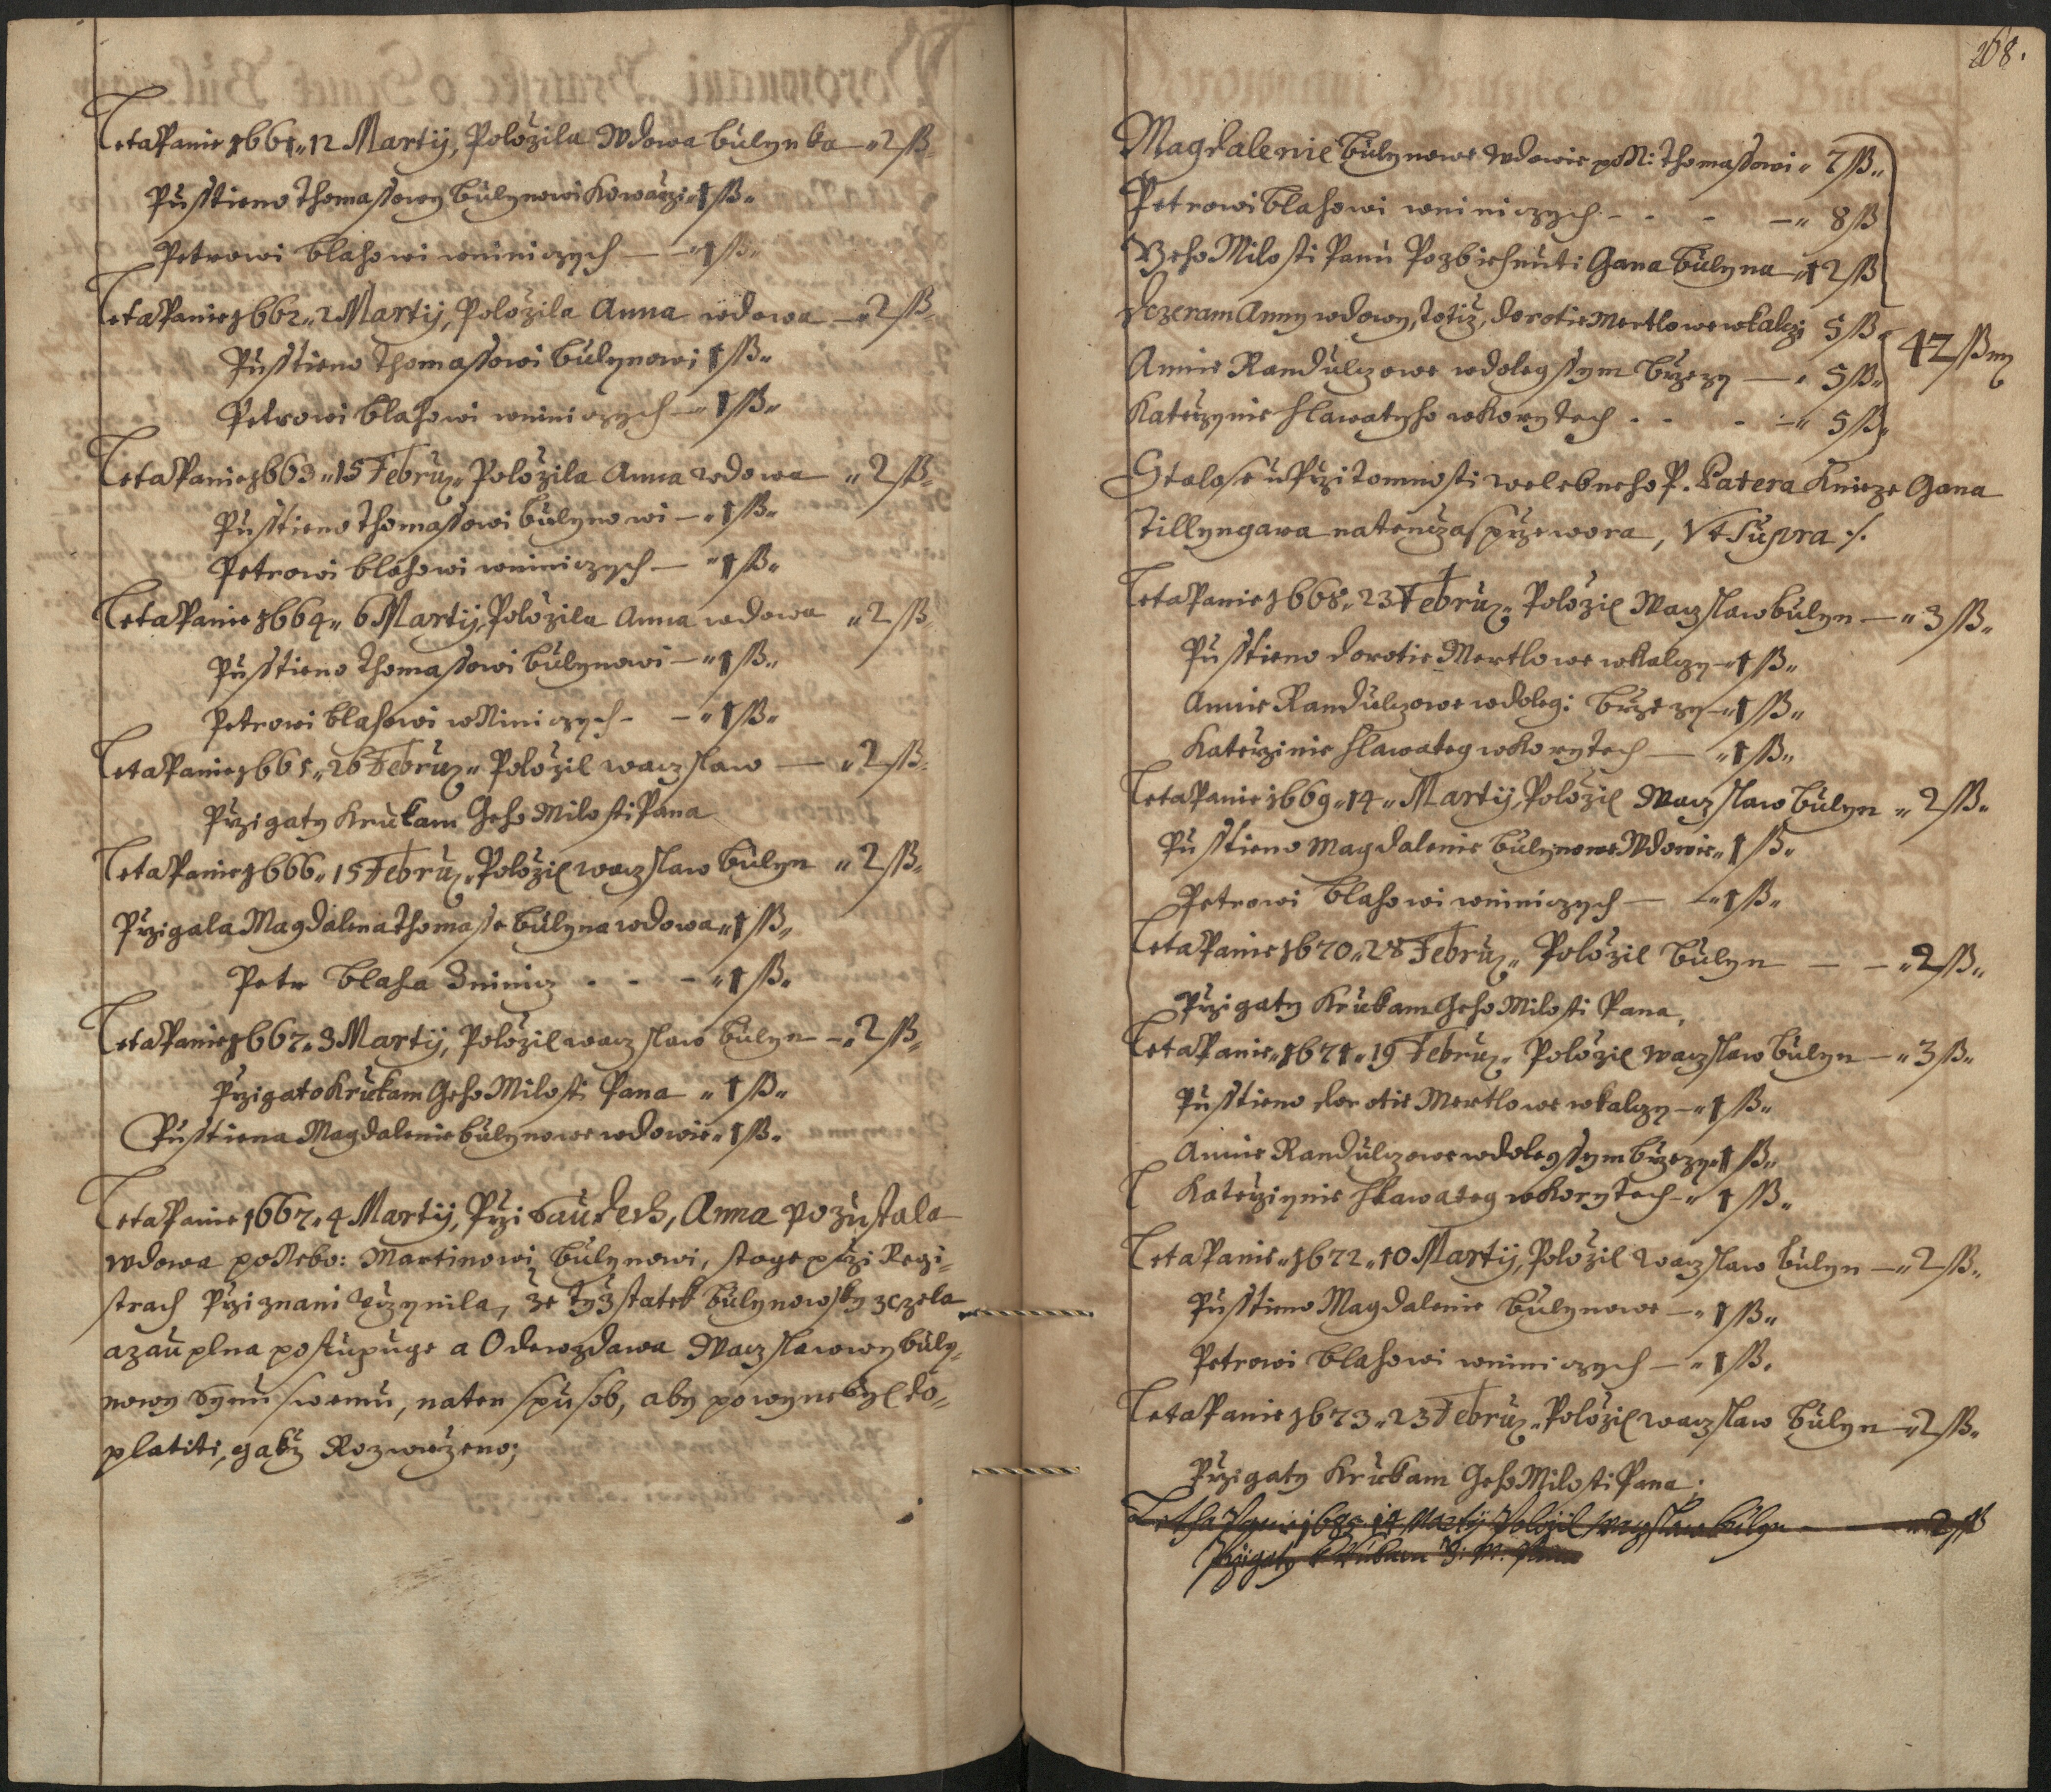 Leta Panie 1661 „ 12 Martij, Položila Wdowa bulynka — „ 2 ß „
Pusstieno Thomassowy bulynowi Kowarzi „ 1 ß „
Petrowi blahowi wniniczych — „ 1 ß „
Leta Panie 1662 „ 2 Martij, Položila Anna wdowa — „ 2 ß „
Pusstieno Thomassowi bulynowi 1 ß „
Petrowi blahowi wniniczych — „ 1 ß „
Leta Panie 1663 „ 15 Februz „ Položila Anna wdowa „ 2 ß „
Pusstieno Thomassowi bulynowi — „ 1 ß „
Petrowi blahowi wniniczych — „ 1 ß „
Leta Panie 1664 „ 6 Martij, Položila Anna wdowa „ 2 ß „
Pusstieno Thomassowi bulynowi — „ 1 ß „
Petrowi blahowi wNiniczych - — „ 1 ß „
Leta Panie 1665 „ 26 Februz „ Položil waczslaw — „ 2 ß „
Przigaty Krukam Geho Milosti Pana
Leta Panie 1666 „ 15 Februz „ Položil waczslaw bulyn „ 2 ß „
Przigala Magdalena Thomasse bulyna wdowa „ 1 ß „
Petr blaha Zninicz - - — „ 1 ß „
Leta Panie 1667 „ 3 Martij, Položil waczslaw bulyn — „ 2 ß „
Przigato Krukam Geho Milosti Pana „ 1 ß „
Pusstiena Magdalenie bulynowe wdowie „ 1 ß „
Leta Panie 1667 „ 4 Martij, Przi saudech, Anna pozustala
wdowa poNebo: Martinowi bulynowi, stoge przi Regi=
strach Przi znani uczynila, že tyž statek bulynowsky zczela
azauplna postupuge a Odewzdawa Waczslawowy buly=
nowy synu swemu, naten spusob, aby powynen byl do=
platiti, gakž Rozwrzeno;
168.
Magdalenie bulynowe wdowie poN: Thomassowi „ 7 ß „
Petrowi blahowi wniniczych - - — „ 8 ß
Geho Milosti Panu Pozbiehnuti Gana bulyna „ 12 ß
dczeram Anny wdowy, totiž, dorotie Mertlowe wkalczy 5 ß „
Annie Randulczowe wdolegssym brzezy — „ 5 ß „
Katerzynie hlawatyho wKorytech - - - — „ 5 ß „
42 ß my
Stalo se u Przitomnosti welebneho P. Patera Knieze Gana
Tillyngara natenczas przewora, Vt Supra ./.
Leta Panie 1668 „ 23 Februz „ Položil Waczslaw bulyn — „ 3 ß „
Pusstieno dorotie Mertlowe wKalczy — „ 1 ß „
Annie Randulczowe wdolegi brzezy — „ 1 ß „
Katerzinie hlawateg wKorytech — „ 1 ß „
Leta Panie 1669 „ 14 „ Martij, Položil Waczslaw bulyn „ 2 ß „
Pusstieno Magdalenie bulynowe Wdowie „ 1 ß „
Petrowi blahowi wniniczych — „ 1 ß „
Leta Panie 1670 „ 28 Februz „ Položil bulyn — — „ 2 ß „
Przigaty Krukam Geho Milosti Pana,
Leta Panie „ 1671 „ 19 Februz „ Položil waczslaw bulyn — „ 3 ß „
Pusstieno dorotie Mertlowe wkalczy — „ 1 ß „
Annie Randulczowe wdolegssym brzezy „ 1 ß „
Katerziynie hlawateg wKorytech — „ 1 ß „
Leta Panie „ 1672 „ 10 Martij, Položil waczslaw bulyn — „ 2 ß „
Pusstieno Magdalenie bulynowe — „ 1 ß „
Petrowi blahowi wniniczych — „ 1 ß „
Leta Panie 1673 „ 23 Februz „ Položil waczslaw bulyn — „ 2 ß „
Przigaty Krukam Geho Milosti Pana;
Letha Panie Martij Položil Waczslaw bulyn — „ 2 ß
Przigaty k Rukam